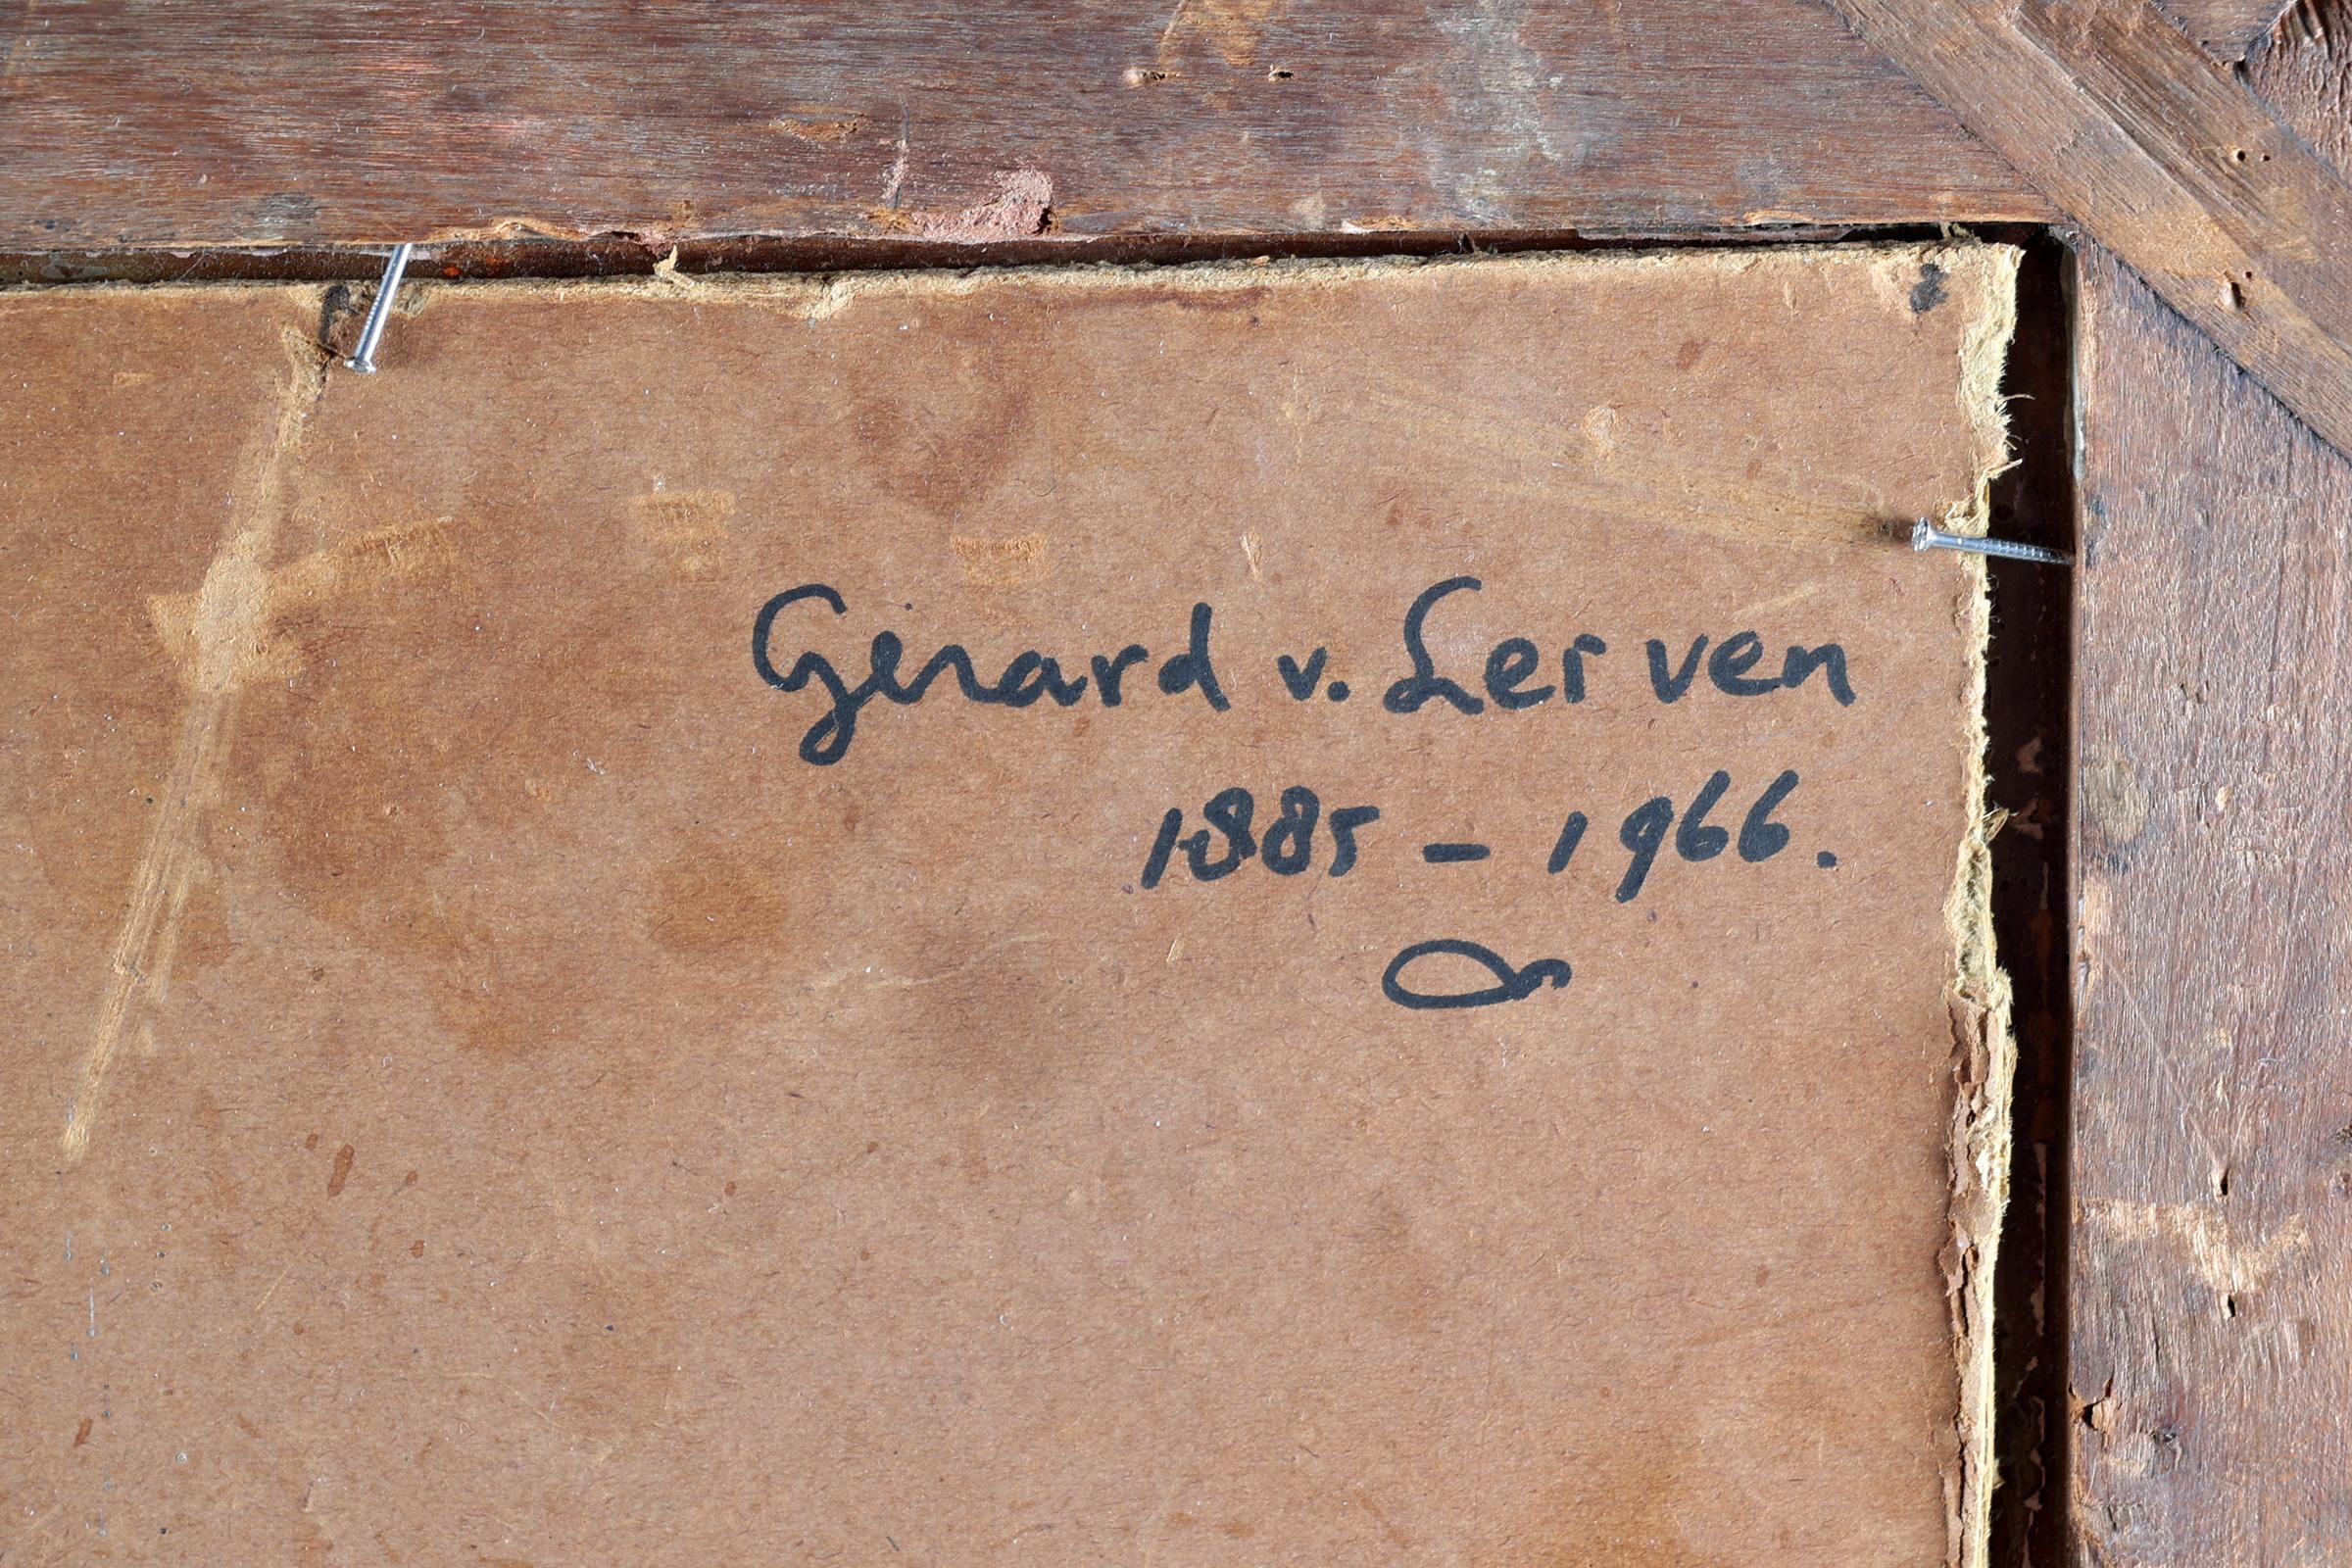 Gerard v. Lerven
1885 – 1966.